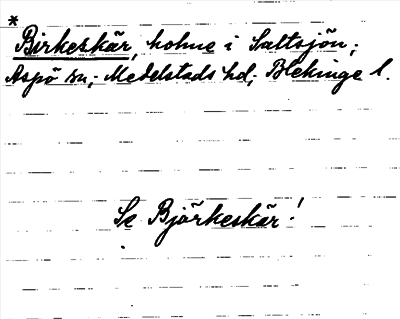 *
Birkeskär, holme i Saltsjön;
Aspö sn; Medelstads hd; Blekinge l.
Se Björkeskär!